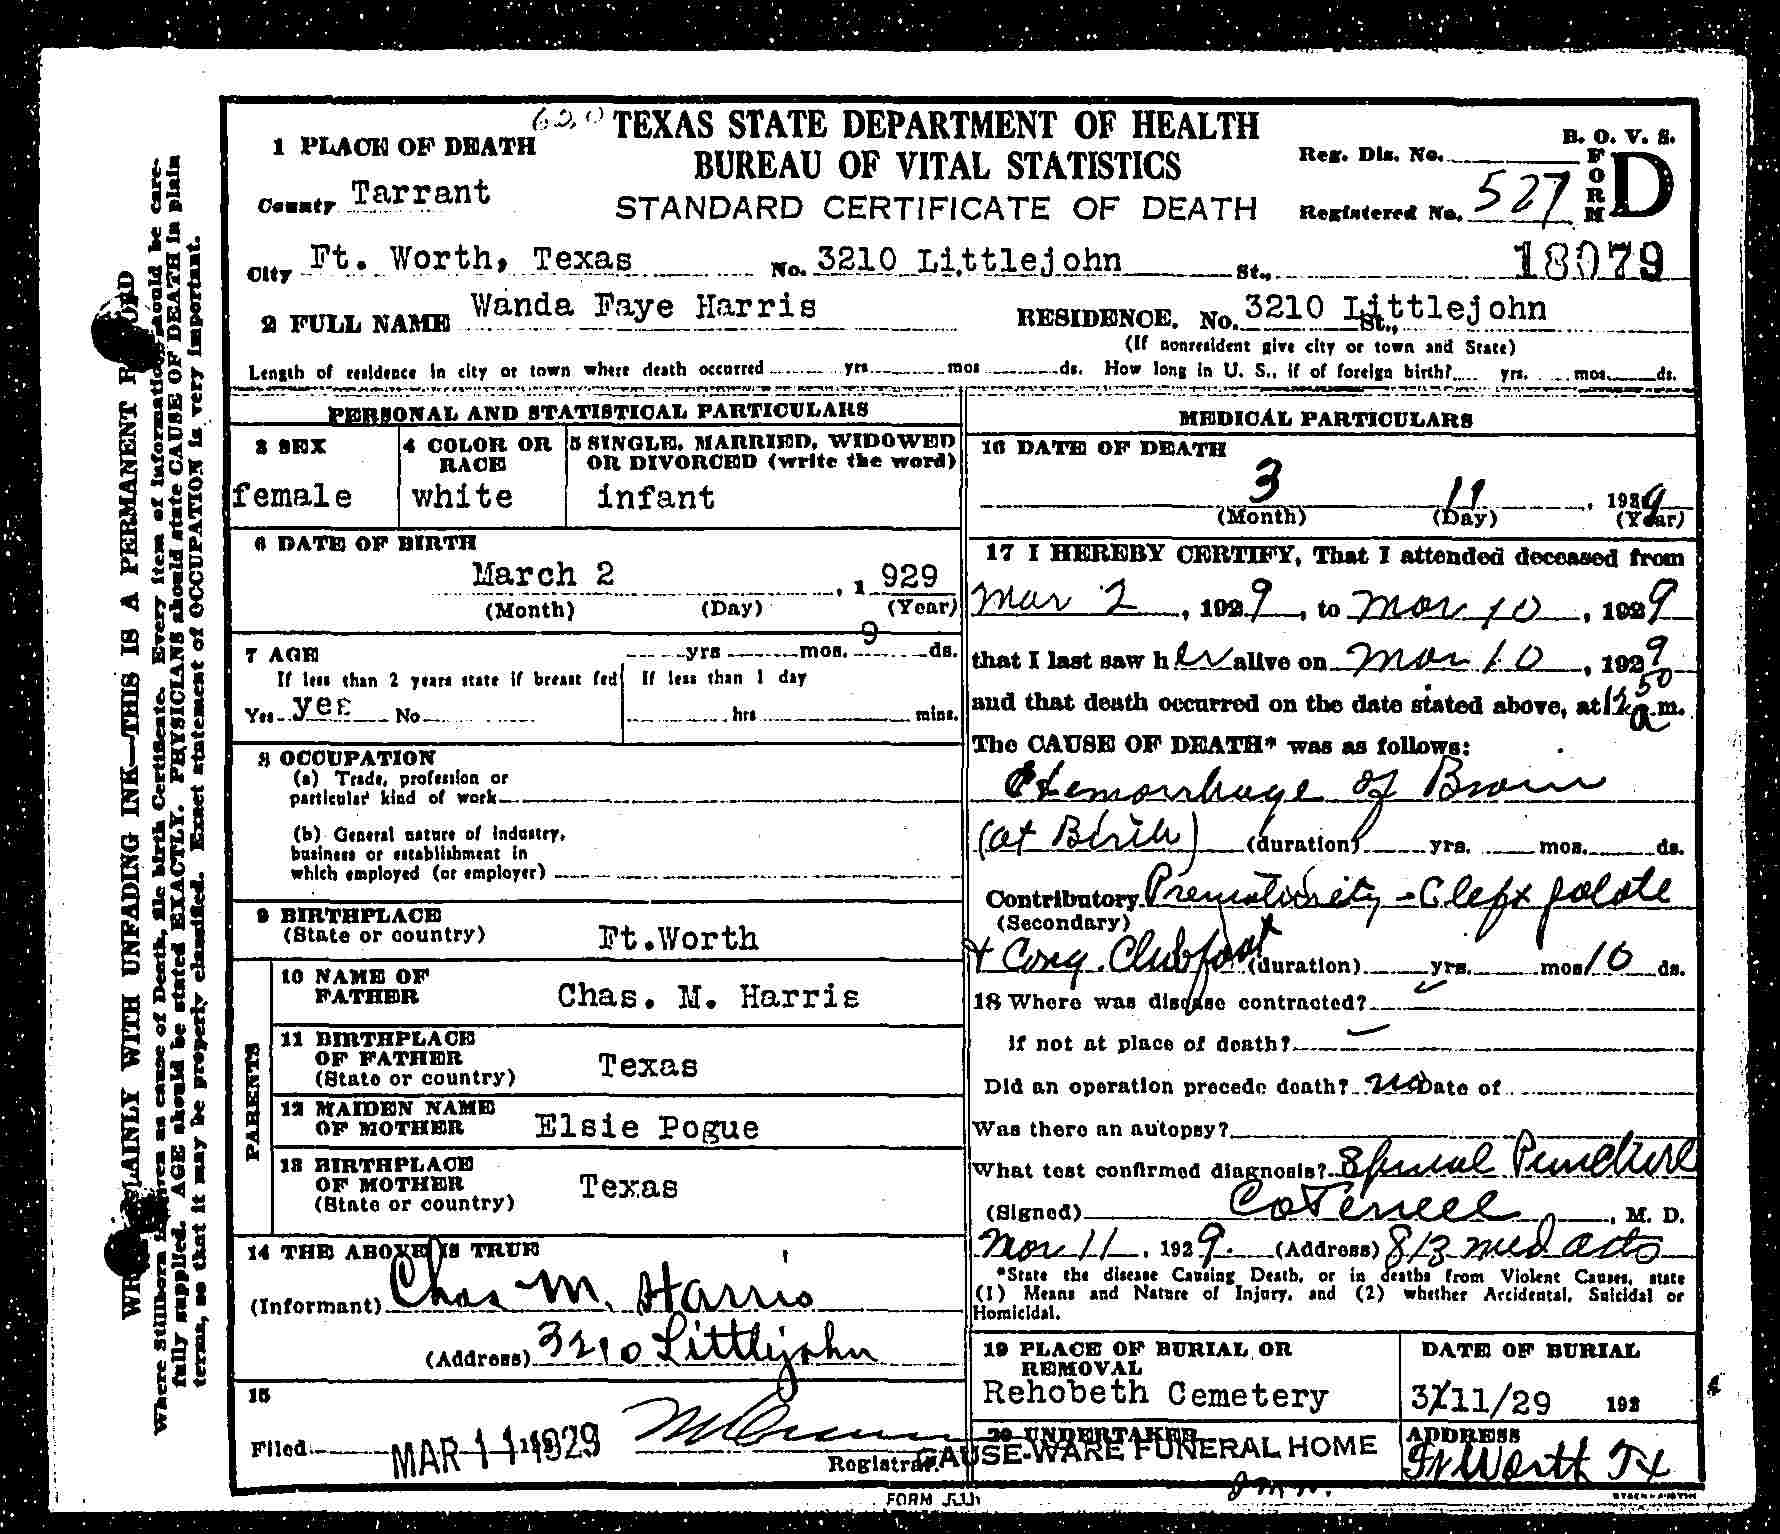 620 TEXAS STATE DEPARTMENT OF HEALTH
BUREAU OF VITAL STATISTICS
STANDARD CERTIFICATE OF DEATH
B. O. V. S.
FORM D
Reg. Dis. No.
Registered No. 527
18079
1 PLACE OF DEATH
County Tarrant
City Ft. Worth, Texas No. 3210 Littlejohn St.,
2 FULL NAME Wanda Faye Harris RESIDENCE. No. 3210 Littlejohn St.,
(If nonresident give city or town and State)
Length of residence in city or town where death occurred yrs. mos ds. How long in U. S., if of foreign birth? yrs. mos. ds.
PERSONAL AND STATISTICAL PARTICULARS
3 SEX
female
4 COLOR OR RACE
white
5 SINGLE, MARRIED, WIDOWED
OR DIVORCED (write the word)
infant
6 DATE OF BIRTH
March 2 , 1 929
(Month) (Day) (Year)
7 AGE yrs mos. 9 ds.
If less than 2 years state if breast fed
Yes yes No
If less than 1 day
hrs mins.
8 OCCUPATION
(a) Trade, profession or
particular kind of work
(b) General nature of industry,
business or establishment in
which employed (or employer)
9 BIRTHPLACE
(State or country) Ft.Worth
PARENTS
10 NAME OF
FATHER Chas. M. Harris
11 BIRTHPLACE
OF FATHER
(State or country) Texas
12 MAIDEN NAME
OF MOTHER Elsie Pogue
13 BIRTHPLACE
OF MOTHER
(State or country) Texas
14 THE ABOVE IS TRUE
(Informant) Chas M. Harris
(Address) 3210 Littlejohn
15
Filed MAR 11 1929
Registrar.
MEDICAL PARTICULARS
16 DATE OF DEATH
3 11 , 1929
(Month) (Day) (Year)
17 I HEREBY CERTIFY, That I attended deceased from
Mar 2 , 1929, to Mar 10 , 1929
that I last saw her alive on Mar 10 , 1929
and that death occurred on the date stated above, at 12 50 a.m.
The CAUSE OF DEATH* was as follows:
Hemorrhage of Brain
(at Birth) (duration) yrs. mos. ds.
Contributory Prematurity - Cleft palate
(Secondary)
+ Cong. Clubfoot (duration) yrs. mos 10 ds.
18 Where was disease contracted?
If not at place of death?
Did an operation precede death? no Date of
Was there an autopsy?
What test confirmed diagnosis? Spinal Puncture
(Signed) CO Terrell , M. D.
Mar 11, 1929. (Address) 813 Med Arts
*State the disease Causing Death, or in deaths from Violent Causes, state
(1) Means and Nature of Injury, and (2) whether Accidental, Suicidal or
Homicidal.
19 PLACE OF BURIAL OR
REMOVAL
Rehobeth Cemetery
DATE OF BURIAL
3/11/29 192
20 UNDERTAKER
GAUSE-WARE FUNERAL HOME
ADDRESS
Ft Worth Tx
FORM
WRITE PLAINLY WITH UNFADING INK—THIS IS A PERMANENT RECORD
Where Stillborn is given as cause of Death, file birth Certificate. Every item of information should be care-
fully supplied. AGE should be stated EXACTLY. PHYSICIANS should state CAUSE OF DEATH in plain
terms, so that it may be properly classified. Exact statement of OCCUPATION is very important.